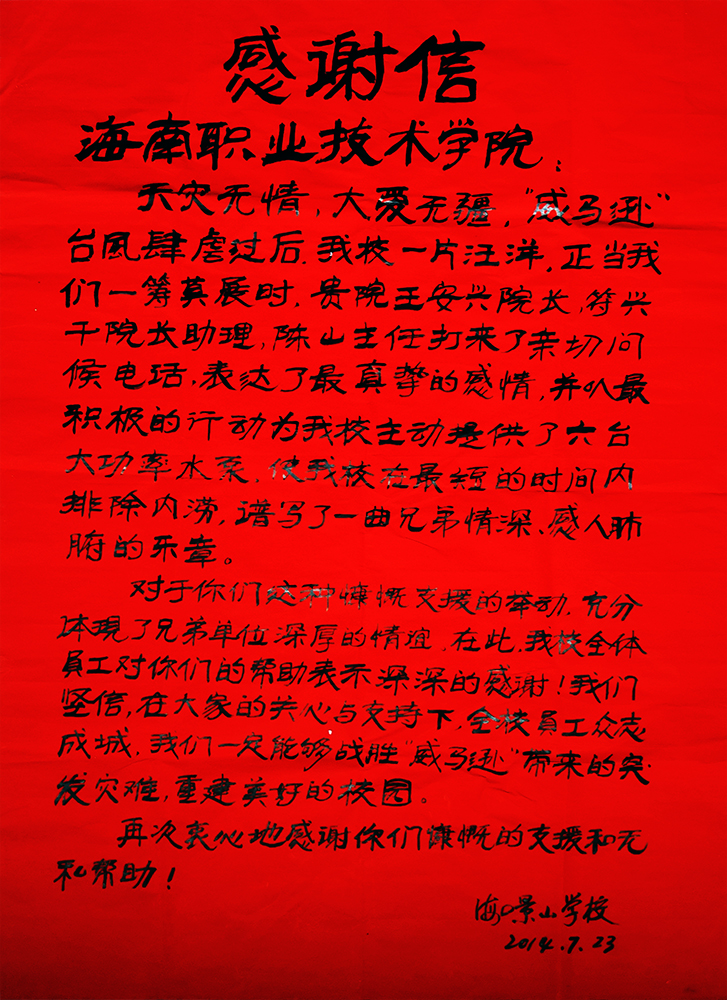 感谢信
海南职业技术学院：
天灾无情，大爱无疆，“威马逊”
台風肆虐过后，我校一片汪洋，正当我
们一筹莫展时，贵院王安兴院长，符兴
干院长助理，陈山主任打来了亲切问
候电话，表达了最真挚的感情，并以最
积极的行动为我校主动提供了六台
大功率水泵，使我校在最短的时间内
排除内涝，谱写了一曲兄弟情深、感人肺
腑的乐章。
对于你们这种慷慨支援的举动，充分
体現了兄弟单位深厚的情谊，在此，我校全体
員工对你们的帮助表示深深的感谢！我们
坚信，在大家的关心与支持下，全校員工众志
成城，我们一定能够战胜“威马逊”带来的突
发灾难，重建美好的校园。
再次衷心地感谢你们慷慨的支援和无
私帮助！
海口景山学校
2014.7.23